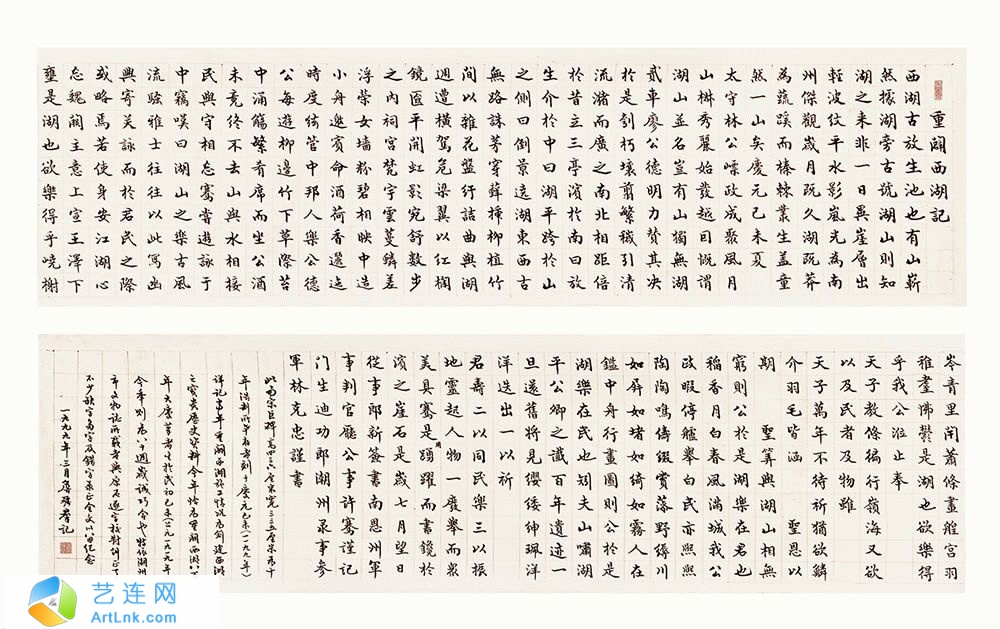 重闢西湖記
西湖古放生池也有山嶄
然據湖旁古號湖山則知
湖之来非一日異崖層出
輕波紋平水影嵐光為南
州傑觀歲月既久湖既莽
為蔬蹊而榛棘叢生蓋童
然一山矣慶元己未夏
太守林公嶫政成聚風月
山林秀麗始發越回慨謂
湖山並名豈有山獨無湖
貳車廖公德明力贊其决
於是刳朽壤翦繁穢引清
流潴而廣之南北相距倍
於昔立三亭濱於南曰放
生介於中曰湖平跨於山
之側曰倒景遶湖東西古
無路誅茅穿薜揀柳植竹
間以雜花盤紆詰曲與湖
週遭横駕危梁翼以紅欄
鏡匳平開虹影宛舒數步
之内祠宫梵宇雲蔓鱗差
浮榮女墙粉碧相映中造
小舟邀賓命酒荷香選遠
時度絃管中邦人樂公德
公每遊柳邊竹下草際苔
中涌觴縈肴席而坐公酒
未竟终不去山與水相接
民與守相忘騫嘗遊詠于
中竊嘆曰湖山之樂古風
流骚雅士往往以此寫幽
興寄美詠而於君民之際
或略焉若使身安江湖心
忘魏闕主意上宣王澤下
壅是湖也欲樂得乎嶢榭
岑青里閈蕭條畫艎宫羽
稚耋怫鬱是湖也欲樂得
乎我公涖止奉
天子教條徧行嶺海又欲
以及民者及物雖
天子萬年不待祈猶欲鱗
介羽毛皆涵 聖恩以
期 聖筭與湖山相無
窮則公於是湖樂在君也
稻香月白春風滿城我公
政暇停艫舉白民亦熙熙
陶陶鳴儔綴賞落野緣川
如屏如堵如綺如霧人在
鑑中舟行畫圖則公於是
湖樂在民也矧夫山嘯湖
平公卿之讖百年遺迹一
旦還舊將見纓緌紳珮洋
洋迭出一以祈
君壽二以同民樂三以振
地靈起人物一廢舉而眾
美具騫是用踴躍而書鏡於
濱之崖石是歲七月望日
從事郎新簽書南恩州軍
事判官廳公事許騫謹記
门生迪功郎潮州录事參
軍林克忠謹書
此南宋巨碑高四三六厘米寬三三五厘米爲十
年大慶
今年則爲八十週歲誠巧合也特依潮州
市文物誌所載者與原石逐字校對訂正了
不少缺字
一九九九年三月
艺连网
ArtLnk.com